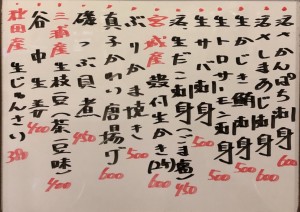 活かんぱち刺身 600
活さしまあじ刺身
生かじき鮪刺身 500
生トロサーモン刺身 500
生サバ刺身 500
活生だこ刺身(ごま塩) 450
宮城産 殻付生かき(1ヶ) 500
ぶりかま焼き 600
真子かれい唐揚げ 600
磯つぶ貝煮 450
三浦産 生枝豆(茶豆味) 400
谷中生姜 400
秋田産 生じゅんさい 380